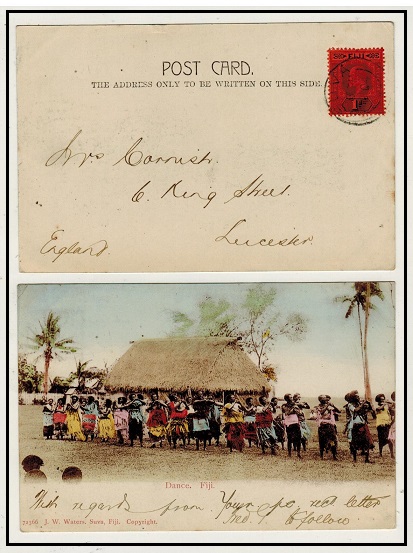 POST CARD.
THE ADDRESS ONLY TO BE WRITTEN ON THIS SIDE.
FIJI
Mrs Cornish.
6. King Street.
Leicester.
England.
Dance. Fiji.
With regards from. Your po. next letter
to follow
71366 J. W. Waters, Suva, Fiji. Copyright.